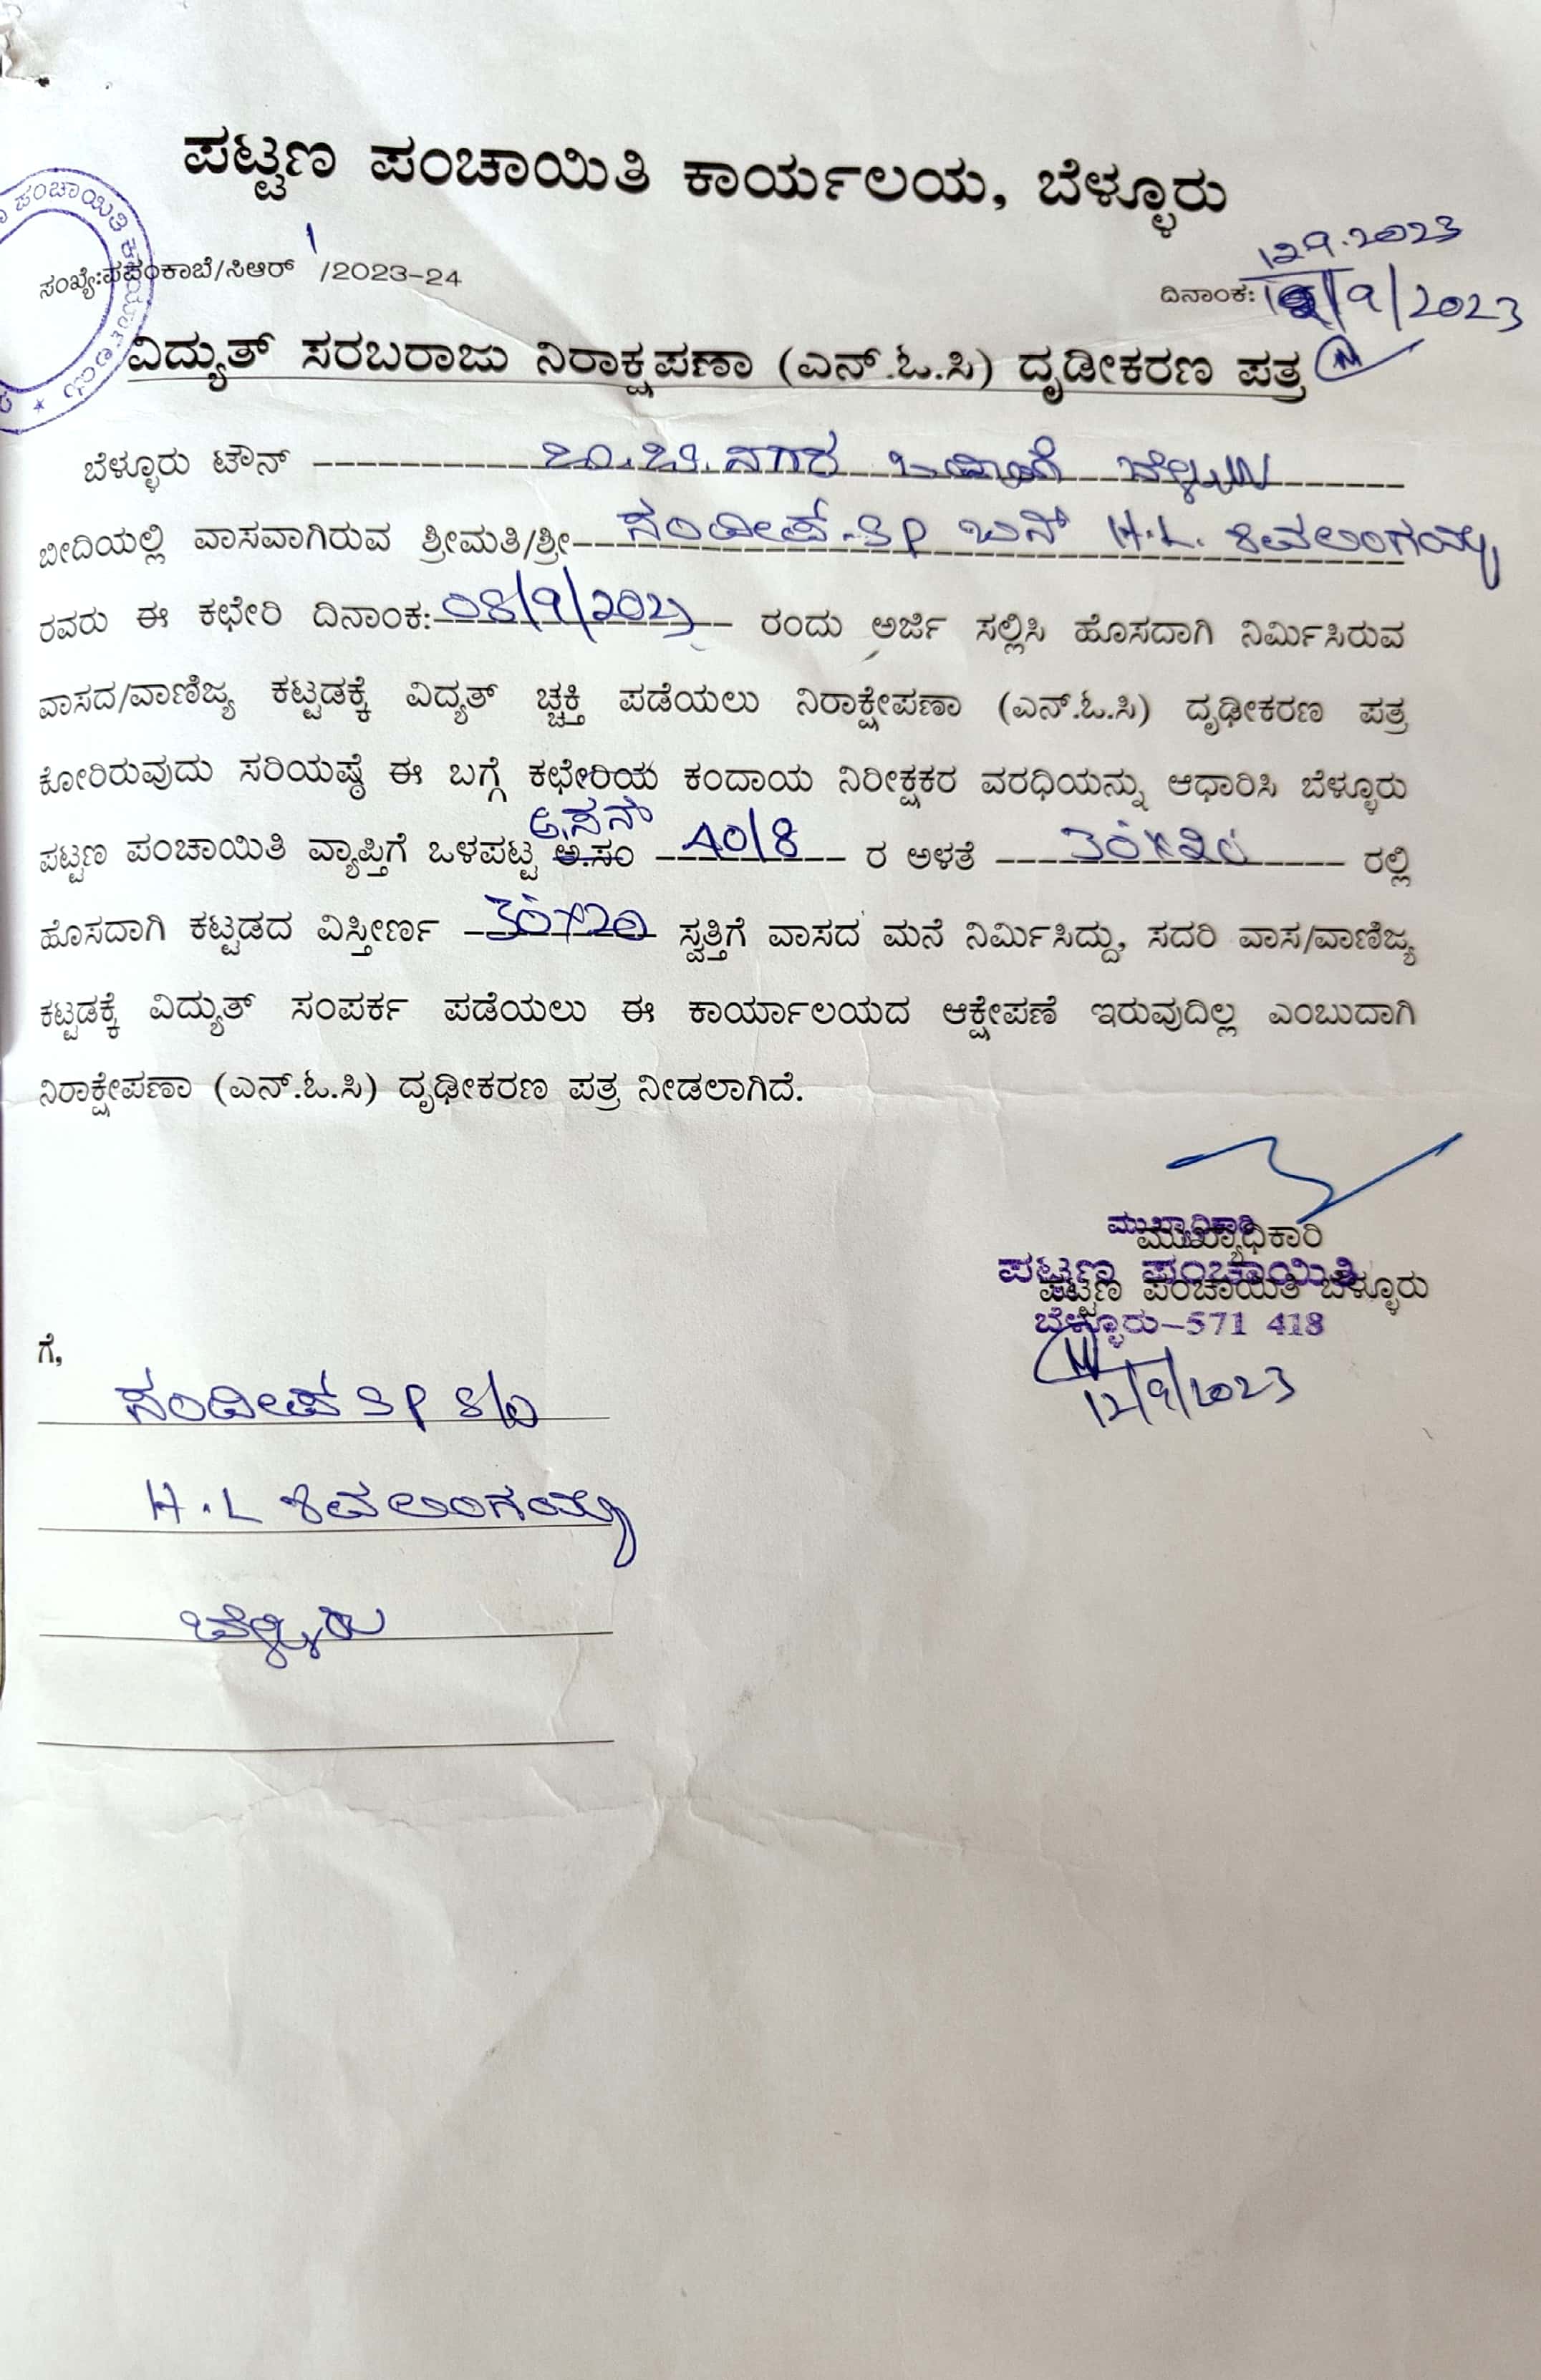 ಪಟ್ಟಣ ಪಂಚಾಯಿತಿ ಕಾರ್ಯಲಯ, ಬೆಳ್ಳೂರು
ಪಂಚಾಯಿತಿ
12.9.2023
ಸಂಖ್ಯೆ:ಪಪಂಕಾಬೆ/ಸಿಆರ್ 1/2023-24
ದಿನಾಂಕ: /9/2023
ವಿದ್ಯುತ್ ಸರಬರಾಜು ನಿರಾಕ್ಷಪಣಾ (ಎನ್.ಓ.ಸಿ) ದೃಡೀಕರಣ ಪತ್ರ
ಬೆಳ್ಳೂರು ಟೌನ್ ನಗರ ಬೆಳ್ಳೂರು
ಬೀದಿಯಲ್ಲಿ ವಾಸವಾಗಿರುವ ಶ್ರೀಮತಿ/ಶ್ರೀ ಸಂದೀಪ್ SP ಬಿನ್ H.L. ಶಿವಲಿಂಗಯ್ಯ
ರವರು ಈ ಕಛೇರಿ ದಿನಾಂಕ: 08/9/2023 ರಂದು ಅರ್ಜಿ ಸಲ್ಲಿಸಿ ಹೊಸದಾಗಿ ನಿರ್ಮಿಸಿರುವ
ವಾಸದ/ವಾಣಿಜ್ಯ ಕಟ್ಟಡಕ್ಕೆ ವಿದ್ಯತ್ ಚ್ಚಕ್ತಿ ಪಡೆಯಲು ನಿರಾಕ್ಷೇಪಣಾ (ಎನ್.ಓ.ಸಿ) ದೃಢೀಕರಣ ಪತ್ರ
ಕೋರಿರುವುದು ಸರಿಯಷ್ಠೆ ಈ ಬಗ್ಗೆ ಕಛೇರಿಯ ಕಂದಾಯ ನಿರೀಕ್ಷಕರ ವರಧಿಯನ್ನು ಆಧಾರಿಸಿ ಬೆಳ್ಳೂರು
ಪಟ್ಟಣ ಪಂಚಾಯಿತಿ ವ್ಯಾಪ್ತಿಗೆ ಒಳಪಟ್ಟ ಅ.ಸಂ 40/8 ರ ಅಳತೆ 30x20 ರಲ್ಲಿ
ಹೊಸದಾಗಿ ಕಟ್ಟಡದ ವಿಸ್ತೀರ್ಣ 30x20 ಸ್ವತ್ತಿಗೆ ವಾಸದ ಮನೆ ನಿರ್ಮಿಸಿದ್ದು, ಸದರಿ ವಾಸ/ವಾಣಿಜ್ಯ
ಕಟ್ಟಡಕ್ಕೆ ವಿದ್ಯುತ್ ಸಂಪರ್ಕ ಪಡೆಯಲು ಈ ಕಾರ್ಯಾಲಯದ ಆಕ್ಷೇಪಣೆ ಇರುವುದಿಲ್ಲ ಎಂಬುದಾಗಿ
ನಿರಾಕ್ಷೇಪಣಾ (ಎನ್.ಓ.ಸಿ) ದೃಢೀಕರಣ ಪತ್ರ ನೀಡಲಾಗಿದೆ.
ಮುಖ್ಯಾಧಿಕಾರಿ
ಮುಖ್ಯಾಧಿಕಾರಿ
ಪಟ್ಟಣ ಪಂಚಾಯಿತಿ
ಪಟ್ಟಣ ಪಂಚಾಯಿತಿ ಬೆಳ್ಳೂರು
ಬೆಳ್ಳೂರು-571 418
12/9/2023
ಗೆ,
ಸಂದೀಪ್ SP S/O
H.L ಶಿವಲಿಂಗಯ್ಯ
ಬೆಳ್ಳೂರು